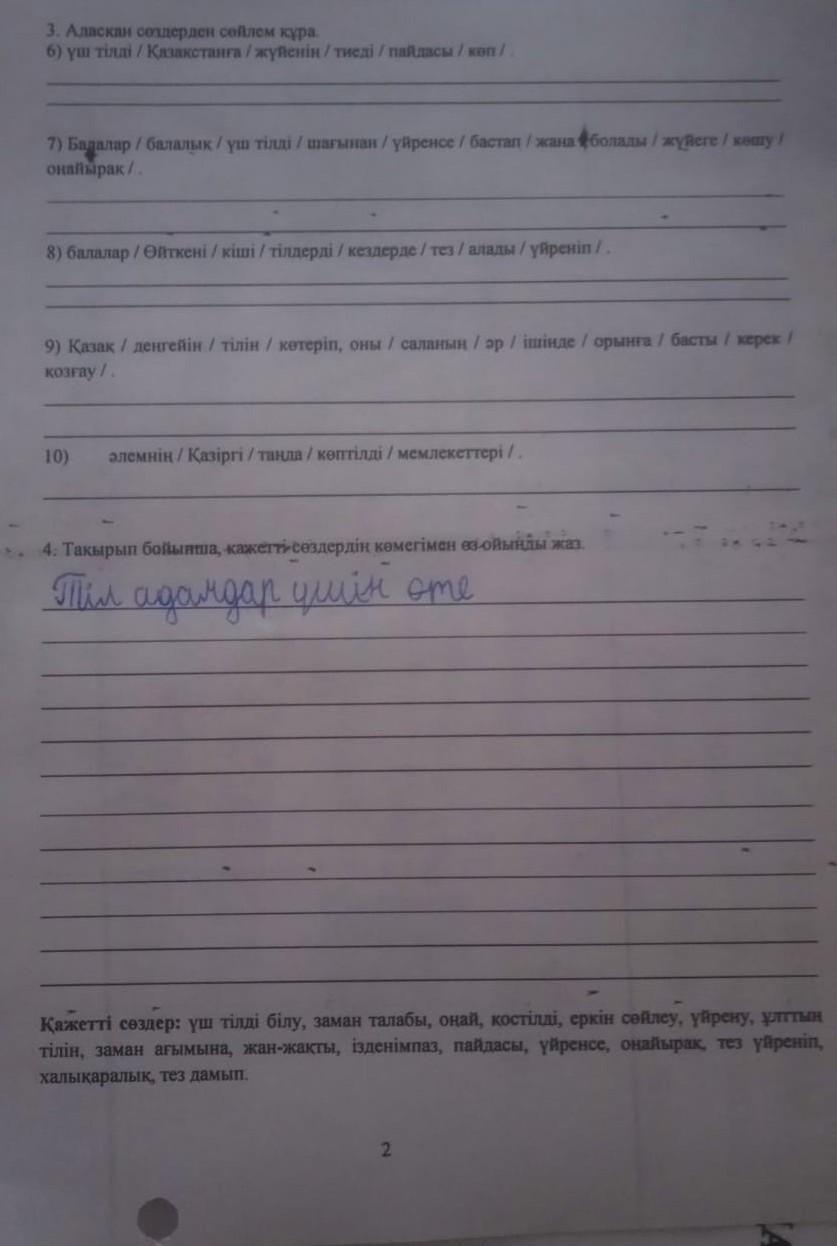 3. Аласқан сөздерден сөйлем құра.
6) үш тілді / Қазақстанға / жүйенің / тиеді / пайдасы / көп / .
7) Балалар / балалық / үш тілді / шағынан / үйренсе / бастап / жаңа болады / жүйеге / көшу /
оңайырақ / .
8) балалар / Өйткені / кіші / тілдерді / кездерде / тез / алады / үйреніп / .
9) Қазақ / деңгейін / тілін / көтеріп, оны / саланың / әр / ішінде / орынға / басты / керек /
қозғау / .
10) әлемнің / Қазіргі / таңда / көптілді / мемлекеттері / .
4. Тақырып бойынша, қажетті сөздердің көмегімен өз ойыңды жаз.
Тіл адамдар үшін өте
Қажетті сөздер: үш тілді білу, заман талабы, оңай, қостілді, еркін сөйлеу, үйрену, ұлттың
тілін, заман ағымына, жан-жақты, ізденімпаз, пайдасы, үйренсе, оңайырақ, тез үйреніп,
халықаралық, тез дамып.
2